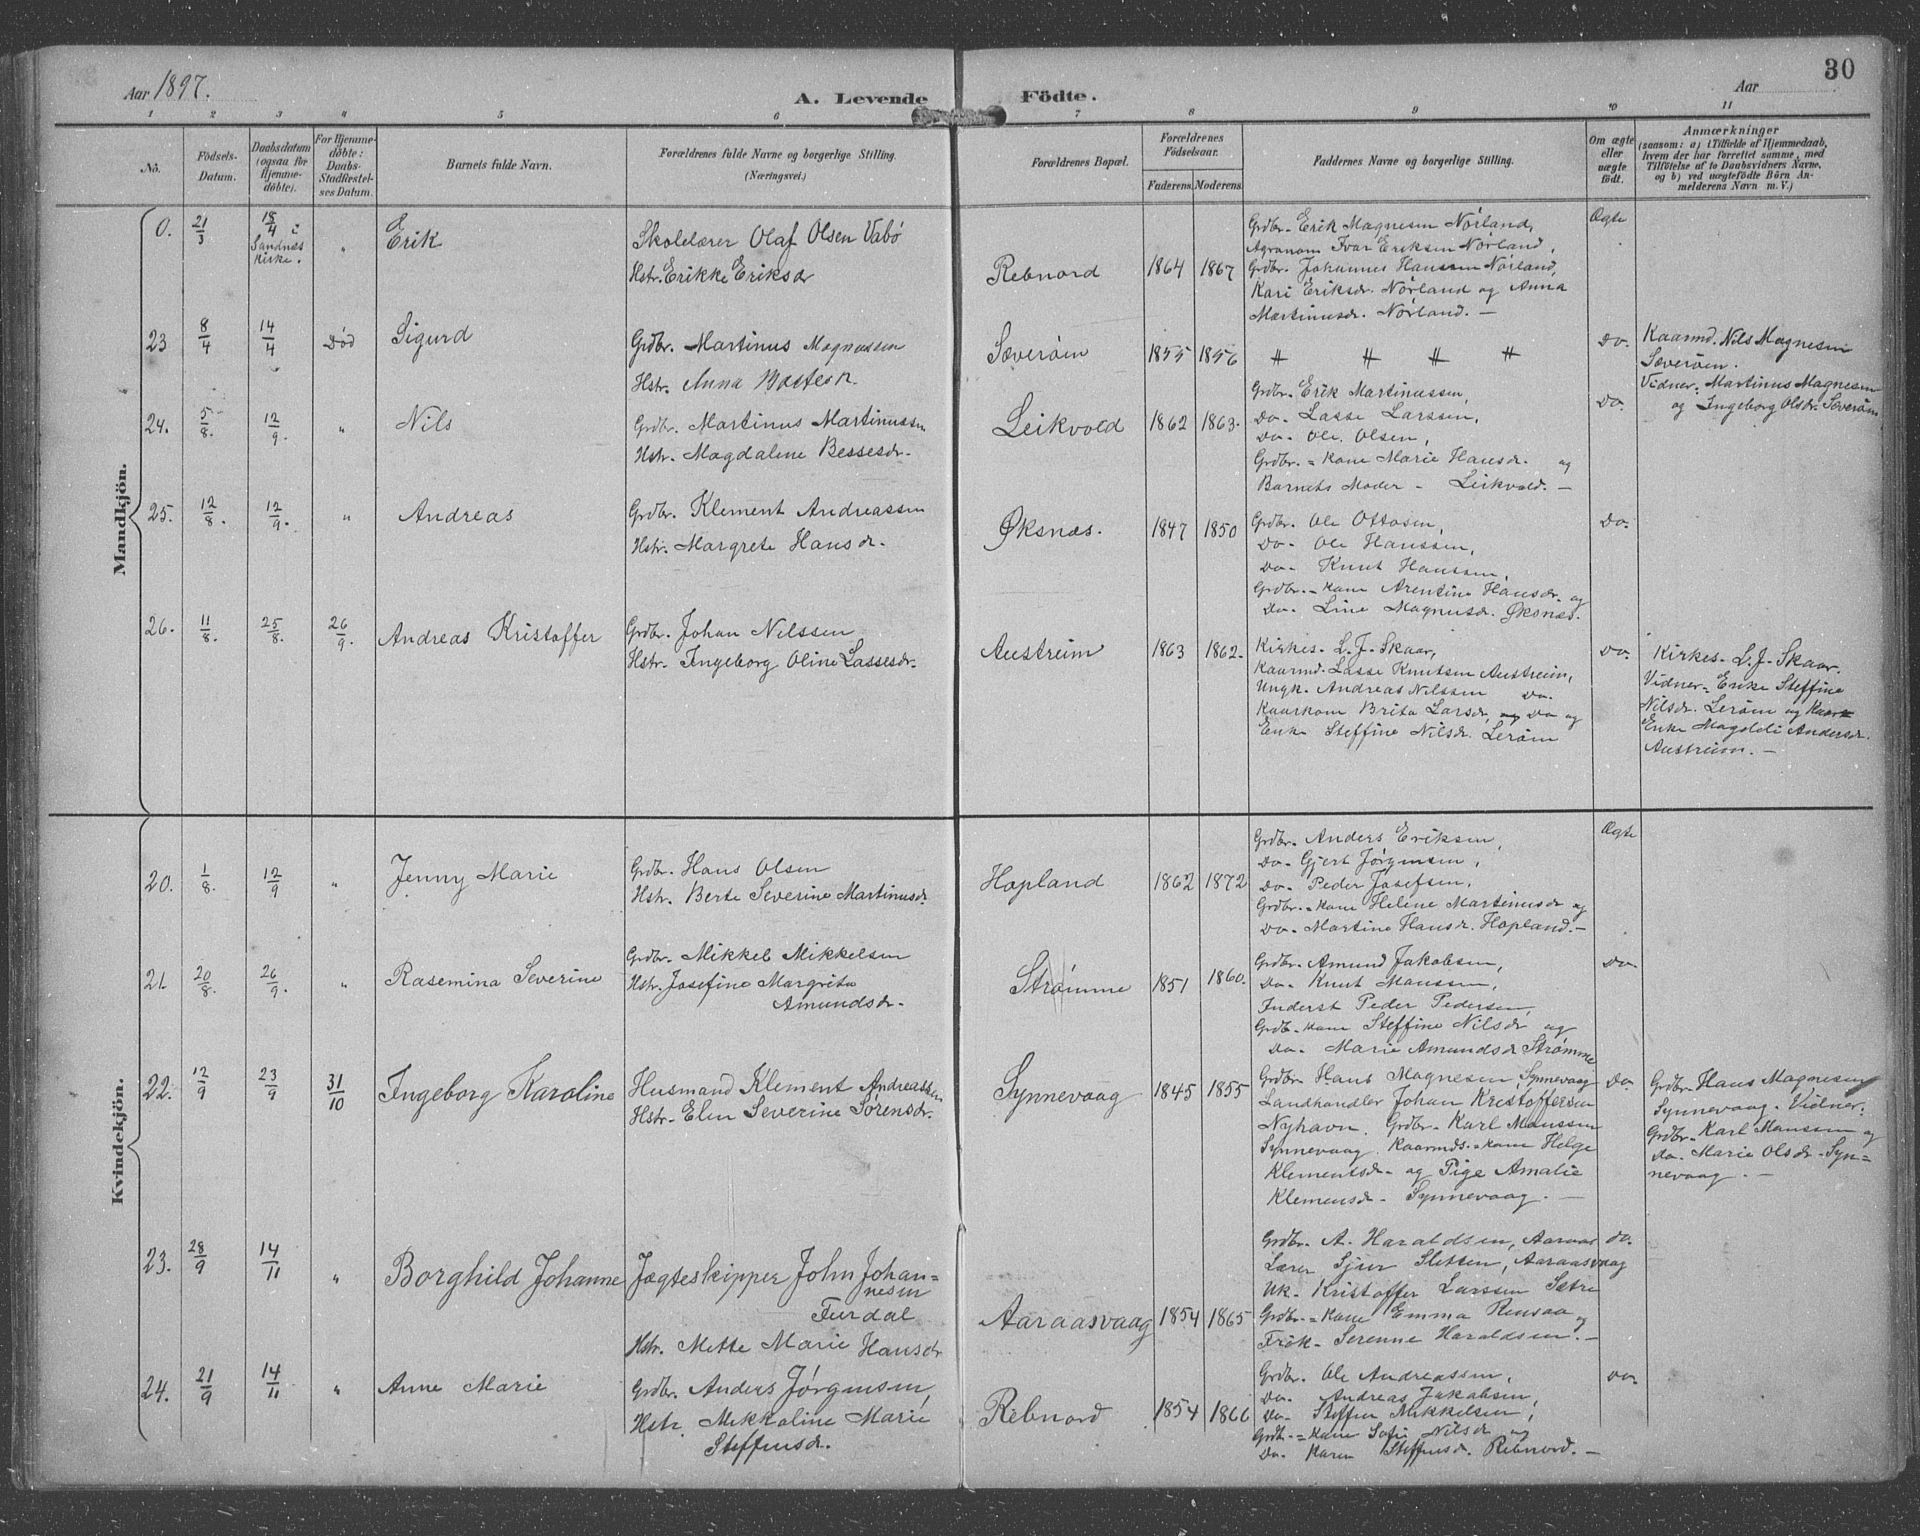 30
Aar 1897.
A. Levende Födte.
Aar
1 2 3 4 5 6 7 8 9 10 11
No.
Födsels-Datum.
Daabsdatum (ogsaa for Hjemmedöbte).
For Hjemmedöbte: Daabs-Stadfæstelses Datum.
Barnets fulde Navn.
Forældrenes fulde Navne og borgerlige Stilling.
(Næringsvei.)
Forældrenes Bopæl.
Forældrenes Födselsaar.
Faderens. Moderens.
Faddernes Navne og borgerlige Stilling.
Om ægte eller uægte födt.
Anmærkninger
(saasom: a) i Tilfælde af Hjemmedaab, hvem der har forrettet samme, med Tilföielse af to Daabsvidners Navne, og b) ved uægtefödte Börn Anmelderens Navn m. V.)
Mandkjön.
0. 21/3 18/4 i Sandnæs Kirke. " Erik
Skolelærer Olaf Olsen Vabø
Hstr. Erikke Eriksdr
Rebnord 1864 1867
Grdbr. Erik Magnesen Nørland,
Agronom Ivar Eriksen Nørland,
Grdbr. Johannes Hanssen Nørland,
Kari Eriksdr. Nørland og Anna
Martinusdr. Nørland. —
Ægte
23 8/4 14/4 Død Sigurd
Grdbr. Martinus Magnussen
Hstr. Anna
Sæverøm 1855 1856
Do.
Kaarmd. Nils Magnesen
Sæverøm.
Vidner: Martinus Magnesen
og Ingeborg Olsdr. Sæverøm
24. 5/8. 12/9. " Nils
Grdbr. Martinus Martinussen
Hstr. Magdalene Bessesdr.
Leikvold 1862 1863.
Grdbr. Erik Martinussen,
Do. Lasse Larssen,
Do. Ole Olsen,
Grdbr.=kone Marie Hansdr. og
Barnets Moder — Leikvold. —
Do.
25. 12/8. 12/9. " Andreas
Grdbr. Klement Andreassen
Hstr. Margrete Hansdr.
Øksnæs. 1847 1850
Grdbr. Ole Ottosen,
Do. Ole Hanssen,
Do. Knut Hanssen,
Grdbr.=kone Arentine Hansdr. og
Do. Line Magnusdr. Øksnæs.
Do.
26. 11/8. 25/8. 26/9. Andreas Kristoffer
Grdbr. Johan Nilssen
Hstr. Ingeborg Oline Lassesdr.
Austreim 1863 1862.
Kirkes. L. J. Skaar,
Kaarmd. Lasse Knutsen Austreim,
Ungk. Andreas Nilssen Do.
Kaarkone Brita Larsdr, Do og
Enke Steffine Nilsdr. Lerøm
Do.
Kirkes. L. J. Skaar.
Vidner. Enke Steffine
Nilsdr. Lerøm og
Enke Magdeli Andersdr.
Austreim. —
Kvindekjön.
20. 1/8. 12/9 " Jenny Marie
Grdbr. Hans Olsen
Hstr. Berte Severine Martinusdr.
Hopland 1862 1872
Grdbr. Anders Eriksen,
Do. Gjert Jørgensen,
Do. Peder Josefsen,
Grdbr.=kone Helene Martinusdr og
Do. Martine Hansdr. Hopland. —
Ægte
21 20/8. 26/9. " Rasemina Severine
Grdbr. Mikkel Mikkelsen
Hstr. Josefine Margrita
Amundsdr.
Strømme 1851 1860.
Grdbr. Amund Jakobsen,
Do. Knut Monssen,
Inderst Peder Pedersen,
Grdb.-kone Steffine Nilsdr og
Do. Marie Amundsdr Strømme
Do.
22. 12/9 23/9 31/10 Ingeborg Karoline
Husmand Klement Andreassen
Hstr. Elen Severine Sørensdr.
Synnevaag 1845 1855
Grdbr. Hans Magnesen, Synnevaag
Landhandler Johan Kristoffersen
Nyhavn. Grdbr. Karl Monssen
Synnevaag. Kaarmds.=kone Helge
Klementsdr. og Pige Amalie
Klemensdr. Synnevaag. —
Do.
Grdbr. Hans Magnesen
Synnevaag. Vidner:
Grdbr. Karl Monssen og
Do. Marie Olsdr. Syn=
nevaag. —
23. 28/9 14/11 " Borghild Johanne
Jægteskipper John Johan=
nesen
Furdal
Hstr. Mette Marie Hansdr
Aaraasvaag 1854 1865
Grdbr. A. Haraldsen, Aaraas
Lærer Sjur Sletten, Aaraasvaag
Uk. Kristoffer Larssen Sætre
Grdbr.=kone Emma Rensaa og
Frök. Serenne Haraldsen. —
do.
24. 21/9 14/11 " Anne Marie
Grdbr. Anders Jørgensen,
Hstr. Mikkaline Marie
Steffensdr.
Rebnord 1854 1866
Grdbr. Ole Andreassen,
Do. Andreas Jakobsen,
Do. Steffen Mikkelsen,
Grdb.=kone Sofie Nilsdr og
Do. Karen Steffensdr. Rebnord. —
Do.